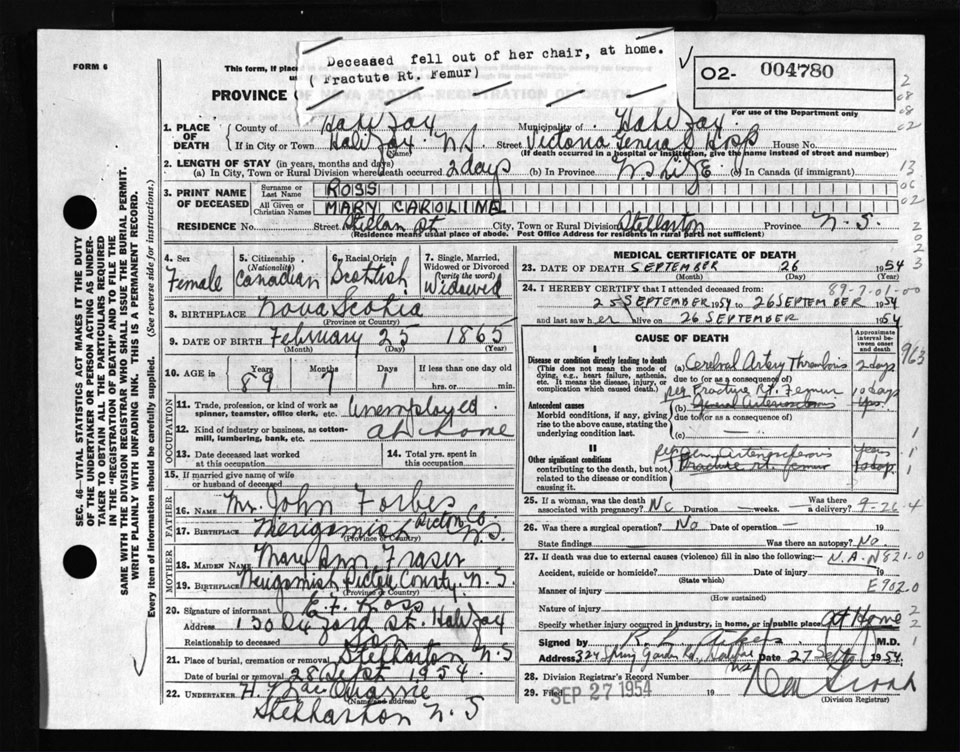 Deceased fell out of her chair, at home.
( Fractute Rt. Femur)
FORM 6
This form, if place
O2- 004780
PROVINCE OF NOVA SCOTIA - REGISTRATION OF DEATH
For use of the Department only
2
08
08
02
1. PLACE OF DEATH County of Halifax Municipality of Halifax
If in City or Town Halifax N.S (Name) Street Victoria General Hosp House No.
(If death occurred in a hospital or institution, give the name instead of street and number)
2. LENGTH OF STAY (in years, months and days)
(a) In City, Town or Rural Division where death occurred 2 days (b) In Province N.S life (c) In Canada (if immigrant)
13
06
02
3. PRINT NAME OF DECEASED
Surname or Last Name ROSS
All Given or Christian Names MARY CAROLIINE
RESIDENCE No. Street St City, Town or Rural Division Stellarton Province N-S
(Residence means usual place of abode. Post Office Address for residents in rural parts not sufficient)
2
0
2
3
4. Sex Female
5. Citizenship (Nationality) Canadian
6. Racial Origin Scottish
7. Single, Married, Widowed or Divorced (write the word) Widowed
8. BIRTHPLACE Nova Scotia
(Province or Country)
9. DATE OF BIRTH February 25 1865
(Month) (Day) (Year)
10. AGE Years 89 Months 7 Days 1 If less than one day old
hrs. or min.
OCCUPATION
11. Trade, profession, or kind of work as spinner, teamster, office clerk, etc. Unemployed
12. Kind of industry or business, as cotton-mill, lumbering, bank, etc. at home
13. Date deceased last worked at this occupation
14. Total yrs. spent in this occupation
15. If married give name of wife or husband of deceased
FATHER
16. Name Mr. John Forbes
17. Birthplace Merigomish Pictou Co. N.S.
(Province or Country)
MOTHER
18. MAIDEN NAME Mary Ann Fraser
19. BIRTHPLACE Merigomish Pictou County N.S.
(Province or Country)
20. Signature of informant Ross
Address 130 Oxford St. Halifax
Relationship to deceased Son
21. Place of burial, cremation or removal Stellarton N.S
Date of burial or removal 28 Sept 1954
22. UNDERTAKER
(Name and address)
Stellarton N.S
MEDICAL CERTIFICATE OF DEATH
23. DATE OF DEATH SEPTEMBER 26 1954
(Month) (Day) (Year)
24. I HEREBY CERTIFY that I attended deceased from: 89-7-01-00
25 SEPTEMBER 1954 to 26 SEPTEMBER 1954
and last saw her alive on 26 SEPTEMBER 1954
CAUSE OF DEATH
Approximate interval between onset and death
963
I
Disease or condition directly leading to death
(This does not mean the mode of dying, e.g., heart failure, asthenia, etc. It means the disease, injury, or complication which caused death.)
(a) Cerebral Artery Thrombosis 2 days
due to (or as a consequence of)
Fracture Rt. Femur 10 days
Antecedent causes
Morbid conditions, if any, giving rise to the above cause, stating the underlying condition last.
(b) General Arteriosclerosis yrs.
due to (or as a consequence of)
(c)
1
II
Other significant conditions
contributing to the death, but not related to the disease or condition causing it
Gen. Arteriosclerosis years
Fracture rt. femur 10 days
1
25. If a woman, was the death associated with pregnancy? No Duration — weeks. Was there a delivery? 9-26-4
26. Was there a surgical operation? No Date of operation —
State findings Was there an autopsy? No.
27. If death was due to external causes (violence) fill in also the following:— N.A. N821.0
Accident, suicide or homicide? Date of injury 19
(State which)
Manner of injury E902.0
(How sustained)
Nature of injury 2
Specify whether injury occurred in industry, in home, or in public place. At Home 2
Signed by M.D. 1
Address 324 Spring Garden Rd., Halifax Date 27 Sept 1954.
N.S
28. Division Registrar's Record Number
29. Filed SEP 27 1954 19
(Division Registrar)
SEC. 46—VITAL STATISTICS ACT MAKES IT THE DUTY OF THE UNDERTAKER OR PERSON ACTING AS UNDERTAKER TO OBTAIN ALL THE PARTICULARS REQUIRED IN THE "REGISTRATION OF DEATH" AND TO FILE THE SAME WITH THE DIVISION REGISTRAR WHO SHALL ISSUE THE BURIAL PERMIT.
WRITE PLAINLY WITH UNFADING INK. THIS IS A PERMANENT RECORD.
Every item of information should be carefully supplied. (See reverse side for instructions.)